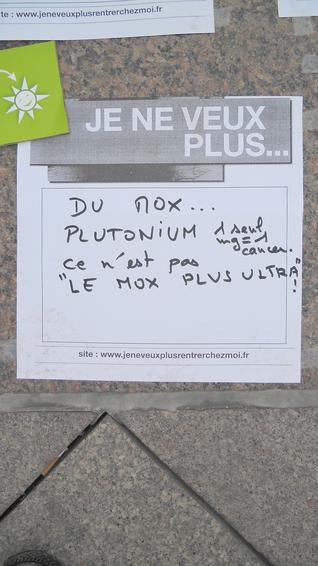 te : www.jeneveuxplusrentrerchezmoi.fr
JE NE VEUX
PLUS...
DU MOX...
PLUTONIUM 1 seul
mg=1
cancer.
Ce n'est pas
"LE MOX PLUS ULTRA"
!
site : www.jeneveuxplusrentrerchezmoi.fr